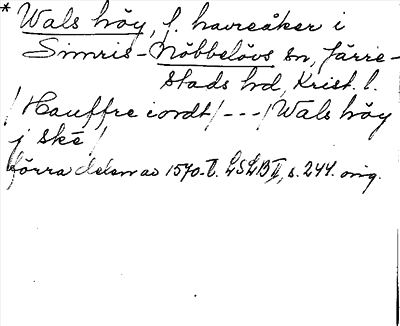 * Wals höy, f. havreåker i
Simris-Nöbbelövs sn, Järre-
stads hd, Krist. l.
/Hauffre iordt/---/Wals höy
j ské/
förra delen av 1570-t. LSLB II, s. 244. orig.